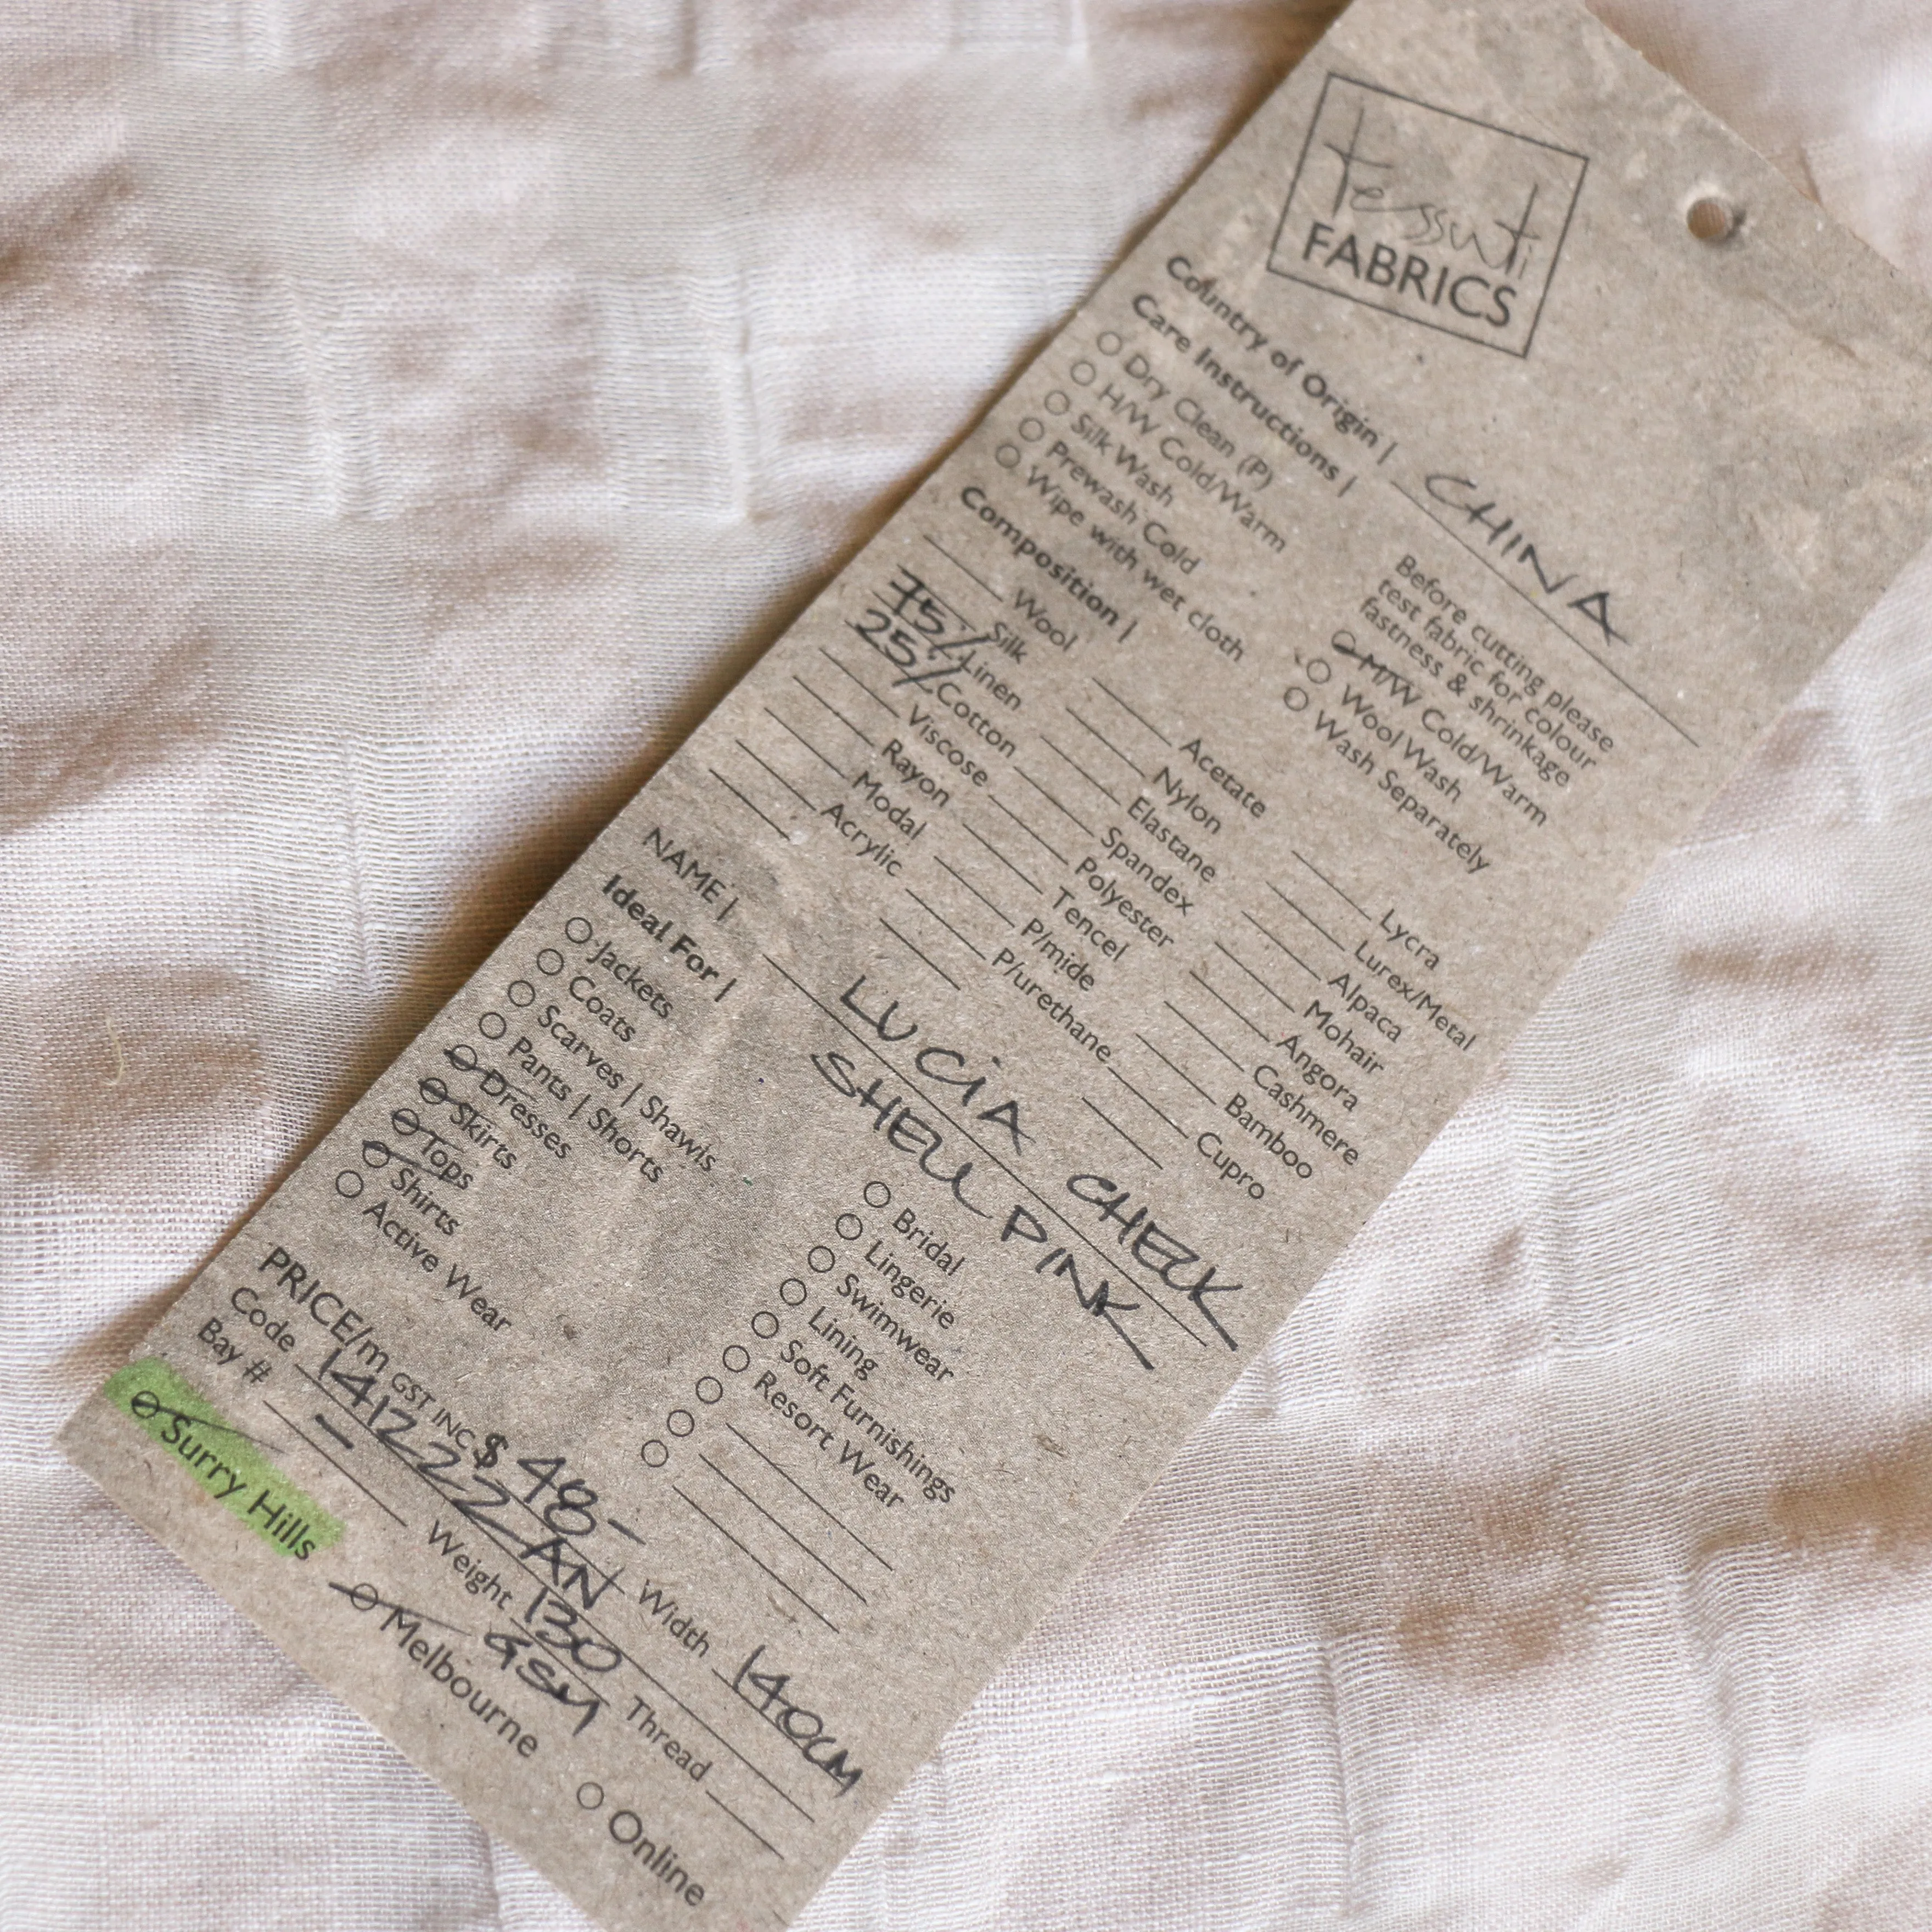 tessuti
FABRICS
Country of Origin | CHINA
Care Instructions |
Dry Clean (P)
H/W Cold/Warm
Silk Wash
Prewash Cold
Wipe with wet cloth
Before cutting please
test fabric for colour
fastness & shrinkage
M/W Cold/Warm
Wool Wash
Wash Separately
Composition |
Wool
Silk
75% Linen
25% Cotton
Viscose
Rayon
Modal
Acrylic
Acetate
Nylon
Elastane
Spandex
Polyester
Tencel
P/mide
P/urethane
Lycra
Lurex/Metal
Alpaca
Mohair
Angora
Cashmere
Bamboo
Cupro
NAME | LUCIA CHECK
SHELL PINK
Ideal For |
Jackets
Coats
Scarves | Shawls
Pants | Shorts
Dresses
Skirts
Tops
Shirts
Active Wear
Bridal
Lingerie
Swimwear
Lining
Soft Furnishings
Resort Wear
PRICE/m GST INC $ 48-
Code 141222ZAN Width 140CM
Bay # - Weight 130 GSM Thread
Surry Hills Melbourne Online